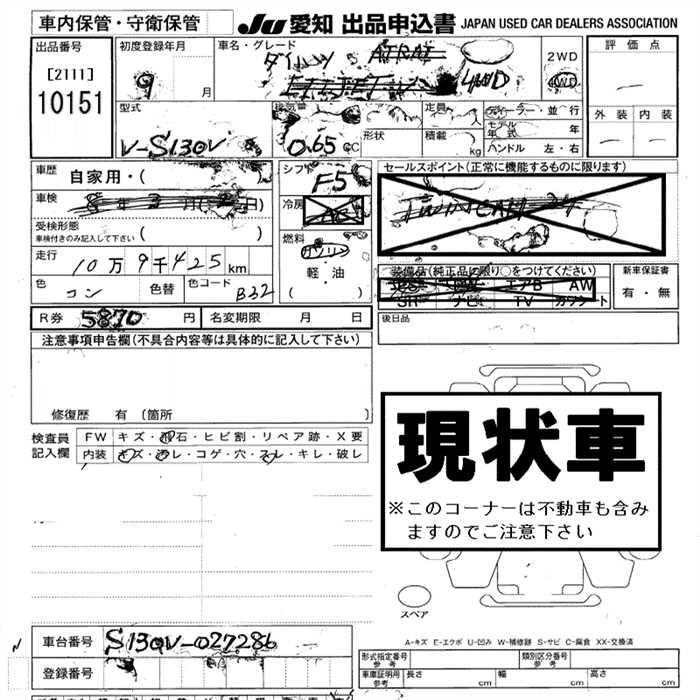 車内保管・守衛保管
JU 愛知 出品申込書 JAPAN USED CAR DEALERS ASSOCIATION
出品番号
[2111]
10151
初度登録年月
9 月
車名・グレード
ダイハツ ATRAI
4WD
2WD
4WD
評価点
外装 内装
型式
V-S130V
排気量
0.65 CC
形状
定員
積載 kg
ディーラー・並行
モデル年式 年
ハンドル 左・右
車歴
自家用・( )
車検
8年3月(2日)
受検形態
車検付きのみ記入して下さい ( )
走行
10万9千425km
色
コン
色替
色コード
B32
シフト
F5
冷房
AC
燃料
ガソリン
軽・油
( )
セールスポイント(正常に機能するものに限ります)
TWINCAM 24
装備品(純正品に限り○をつけてください)
PS PW エアB AW
SR ナビ TV カワシート
新車保証書
有・無
R券 5870 円 名変期限 月 日
後日品
注意事項申告欄(不具合内容等は具体的に記入して下さい)
修復歴 有 [箇所 ]
検査員
記入欄
FW キズ・飛石・ヒビ割・リペア跡・X要
内装 キズ・汚レ・コゲ・穴・スレ・キレ・破レ
現状車
※このコーナーは不動車も含み
ますのでご注意下さい
スペア
A-キズ E-エクボ U-凹み W-補修跡 S-サビ C-腐食 XX-交換済
車台番号 S130V-027286
登録番号
形式指定番号
参考
類別区分番号
参考
車庫証明用
参考
長さ cm 幅 cm 高さ cm